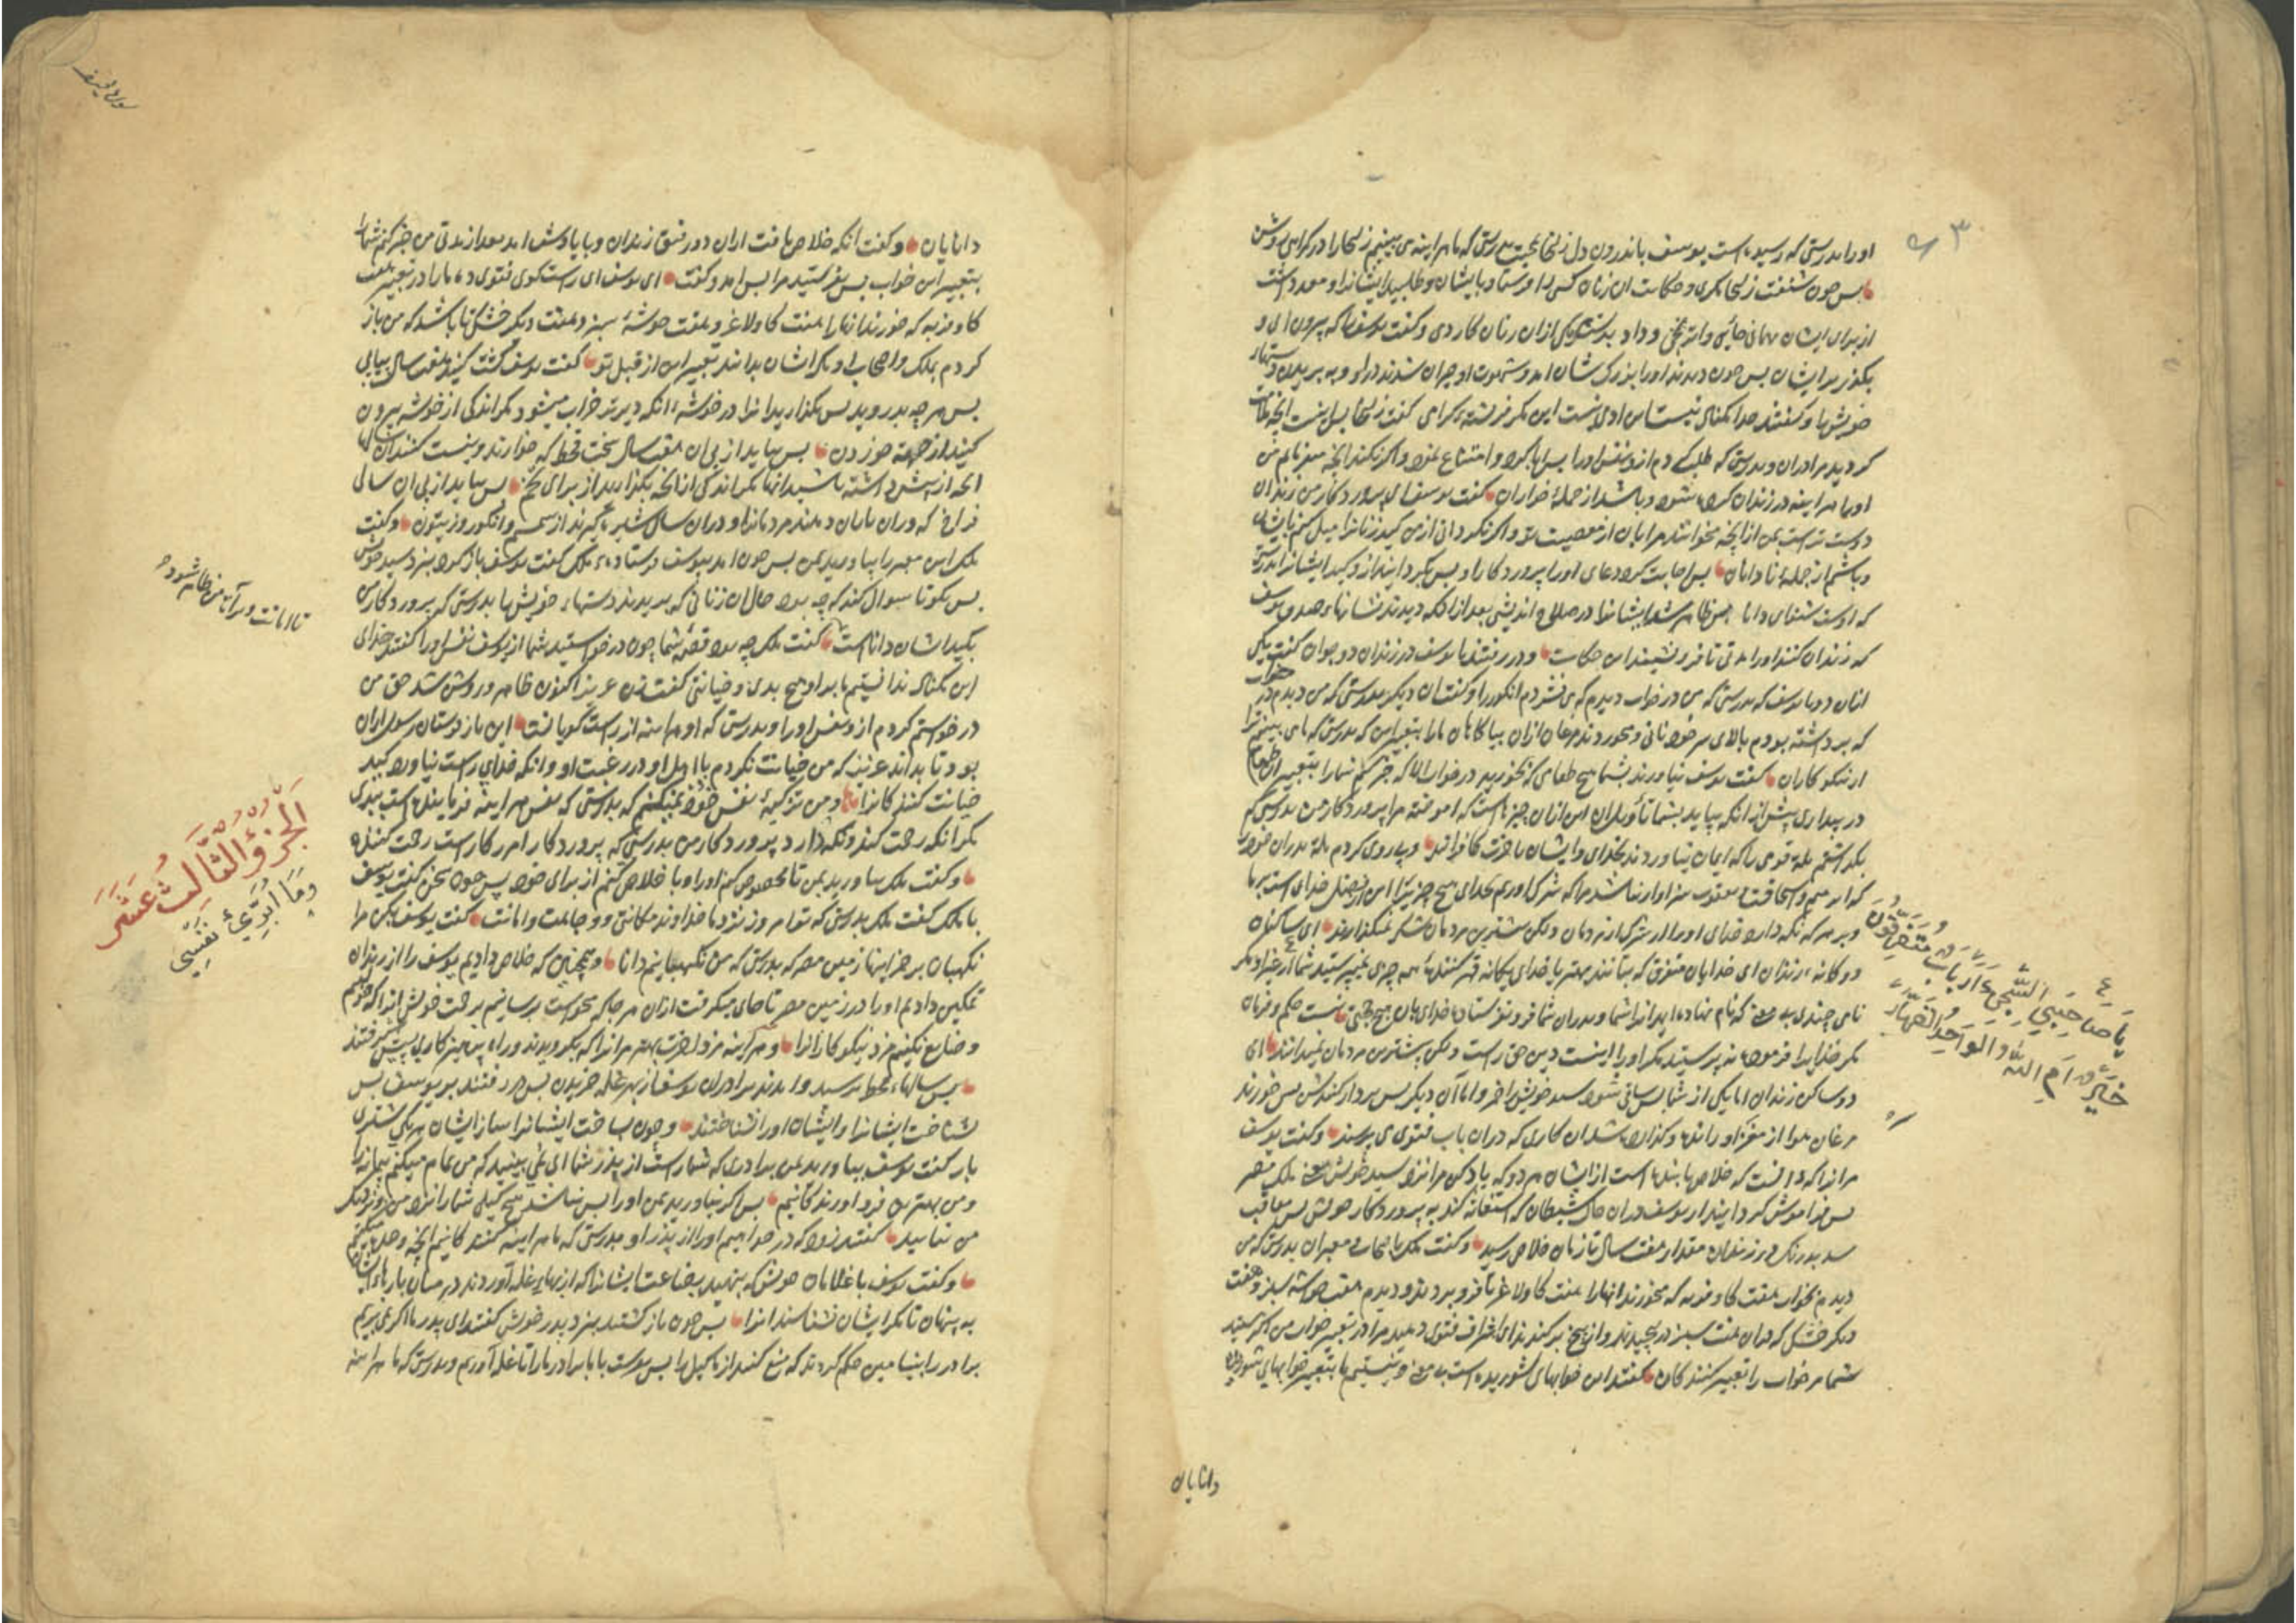 اورا بدرستی که رسیده است یوسف باندرون دل زلیخا بمحبت بدرستی که ما هراینه می بینیم زلیخا را در کمراهی روشن
پس چون شنفت زلیخا مکر و حکایت ان زنان کس را فرستاد بایشان و طلبید ایشانرا و معد داشت
از برای ایشان مهمانی جائی و اترنجی و داد بدست هر یکی ازان زنان کاردی و کفت یوسف را که بیرون ای و
بکذر بر ایشان پس چون دیدند اورا بزرک شان امد و مبهوت او حیران شدند در او و به بریدن دستهاء
خویشها و کفتند خدا یکتائی نیست این ادمی نیست این مکر فرشته کرامی کفت زلیخا پس اینست انچه ملامت
کردید مرا دران و بدرستی که طلب کردم ازو نفس اورا پس ابا کرد و امتناع نمود و اکر نکند انچه میفرمایم من
اورا هراینه در زندان کرده شود و باشد از جمله خواران کفت یوسف ای پروردکار من زندان
دوست تر است بمن از انچه میخوانند مرا بان از معصیت تو و اکر نکردانی از من کید زنانرا میل کنم بایشان
و باشم از جمله نادانان پس اجابت کرد دعای اورا پروردکار او پس بکردانید ازو کید ایشانرا بدرستی
که اوست شنوای دانا پس ظاهر شد ایشانرا در صلاح اندیشی بعد از انکه دیدند نشانهاء صدق یوسف
که زندان کنند اورا مدتی تا فرو نشیند این حکایت و در رفتند با یوسف در زندان دو جوان کفت یکی
ازان دو با یوسف که بدرستی که من در خواب دیدم که می فشردم انکور را و کفت ان دیکر بدرستی که من دیدم در خواب
که برداشته بودم بالای سر خود نانی و میخوردند مرغان ازان بیاکاهان مارا بتعبیر این که بدرستی که ما می بینیم ترا
از نیکوکاران کفت یوسف نیاورند بشما هیچ طعامی که بخورید در خواب الا که خبر کنم شمارا بتعبیر ان طعام
در بیداری پیش از انکه بیاید بشما تأویل ان این ازان چیزهاست که اموخته مرا پروردکار من بدرستی که من
بکذاشتم ملة قومی را که ایمان نیاوردند بخدای و ایشان باخرت کافرانند و پیروی کردم ملة پدران خود را
که ابراهیم و اسحاقست و یعقوب سزاوار نباشد مارا که شرک اوریم بخدای هیچ چیز را این از فضل خدای است بر ما
و بر هر که نکه دارد خدای اورا از شرک از مردمان ولکن بیشترین مردمان شکر نمیکذارند ای ساکنان
دوکانه زندان ای خدایان متفرق که بتانند بهتر یا خدای یکانه قهر کننده همه چیزی نمیپرستید شما از خدا دیکر
نامی چندی بی معنی که نام نهاده اید انرا شما و پدران شما فرو نفرستاد خدای بان هیچ حجتی نیست حکم و فرمان
مکر خدایرا فرموده نپرستید مکر اورا اینست دین حق راست ولکن بیشترین مردمان نمیدانند ای
دو ساکن زندان اما یکی از شما پس ساقی شود سید خویش را خمر و اما آن دیکر پس بر دار کنندش پس خورند
مرغان هوا از مغز او رانده و کذارده شد ان کاری که دران باب فتوی می پرسید و کفت یوسف
مرانرا که دانست که خلاص یابنده است از ایشان هر دو که یاد کن مرا نزد سید خویش یعنی ملک مصر
پس فراموش کردانید از یوسف دران حال شیطان که استغاثه کند به پروردکار خویش پس معاقب
شد بدرنک در زندان مقدار هفت سال تا زمان خلاص رسید و کفت ملک با اصحاب و معبران بدرستی که من
دیدم بخواب هفت کاو فربه که میخورند انها را هفت کاو لاغر تا فرو بردند و دیدم هفت خوشه سبز و هفت
دیکر خشک که بران هفت سبز در پیچیدند و از بیخ برکندند ای اشراف فتوی دهید مرا در تعبیر خواب من اکر هستید
شما مر خواب را تعبیر کنندکان کفتند این خوابهای شوریده است بی معنی و نیستیم ما بتعبیر خوابهای شوریده
دانایان
یَا صَاحِبَيِ السِّجْنِ ءَاَرْبَابٌ مُتَفَرِّقُونَ
خَيْرٌ اَمِ اللّٰهُ الْوَاحِدُ الْقَهَّارُ
دانایان و کفت انکه خلاص یافت ازان دو رفیق زندان و بیاد اوش امد بعد از مدتی من خبر کنم شما را
بتعبیر این خواب پس بفرستید مرا پس امد و کفت ای یوسف ای راست کوی فتوی ده مارا در تعبیر هفت
کاو فربه که خورند انها را هفت کاو لاغر و هفت خوشه سبز و هفت دیکر خشک تا باشد که من باز
کردم بملک و اصحاب او مکر ایشان بدانند تعبیر این از قبل تو کفت یوسف کشت کنید هفت سال پیاپی
پس هر چه بدروید پس بکذارید انرا در خوشه انکه دیرتر خراب میشود مکر اندکی از خوشه بیرون
کنید از جهة خوردن پس بیاید از پی ان هفت سال سخت قحط که خوارند و نیست کنند ان سالها
انچه از پیش داشته باشید انها مکر اندکی از انچه بکذارید از برای تخم پس بیاید از پی ان سالی
فراخ که دران باران دهند مردمانرا و دران سال شیره کیرند از سمسم و انکور و زیتون و کفت
ملک این معبر را بیاورید بمن پس چون امد بیوسف فرستاده ملک کفت یوسف باز کرد بنزد سید خویش
پس بکو تا سوال کند که چه بود حال ان زنانی که بریدند دستهاء خویشها بدرستی که پروردکار من
بکید ایشان داناست کفت ملک چه بود قصه شما چون درخواستید شما از یوسف نفس اورا کفتند خدای
این یکتاک ندانستیم ما بر او هیچ بدی و خیانتی کفت زن عزیز اکنون ظاهر و روشن شد حق من
درخواستم کردم ازو نفس اورا و بدرستی که او هراینه از راست کویانست این باز فرستان رسول ازان
بود تا بداند عزیز که من خیانت نکردم با اهل او در غیبت او و انکه خدای راست نیاورد کید
خیانت کنندکانرا و من تزکیهٔ نفس خود نمیکنم که بدرستی که نفس هراینه فرماینده است ببدی
مکر انکه رحمت کند و نکه دارد پروردکار من بدرستی که پروردکار امرزکار است رحمت کننده
و کفت ملک بیاورید بمن تا مخصوص کنم اورا و با خلاص کنم از برای خود پس چون سخن کفت یوسف
با ملک کفت ملک بدرستی که تو امروز نزد ما خداوند مکانتی و وجاهت و امانت کفت یوسف بکن مرا
نکهبان بر خزاینهاء زمین مصر که بدرستی که من نکهبانیم دانا و همچنین که خلاص دادیم یوسف را از زندان
تمکین دادیم اورا در زمین مصر تا جای میکرفت ازان هر جا که میخواست برسانیم برحمت خویش انرا که خواهیم
و ضایع نکنیم مزد نیکوکارانرا و هراینه مزد اخرت بهتر مرانرا که بکرویدند و راه پرهیزکاری پیش کرفتند
پس سالهاء قحط برسید و امدند برادران یوسف از بهر غله خریدن پس در رفتند بر یوسف پس
شناخت ایشانرا و ایشان اورا نشناختند و چون بساخت ایشانرا ساز ایشان هر یکی شتری
بار کفت یوسف بیاورید بمن برادری که شما راست از پدر شما ای نمی بینید که من تمام میکنم پیمانه را
و من بهترین فرو اورندکانیم پس اکر نیاورید بمن اورا پس نباشد هیچ کیلی شما را نزد من و نزدیک
من نیایید کفتند زود که درخواهیم اورا از پدر او بدرستی که ما هراینه کنندکانیم انچه وعده میکنیم
و کفت یوسف با غلامان خویش که بنهید بضاعت ایشانرا که از بهاء غله آوردند در میان بارهاء ایشان
به پنهان تا مکر ایشان نشناسند انرا پس چون باز کشتند بنزد پدر خویش کفتند ای پدر ما اکر می بریم
برادر را بنیامین حکم کردند که منع کنند از ما کیل را پس بفرست با ما برادر ما را تا غله آوریم و بدرستی که ما هراینه
تا امانت در آن من ظاهر شود
اَلْجُزْؤُ الثَّالِثُ عَشَرَ
وَمَا اُبَرِّئُ نَفْسِي